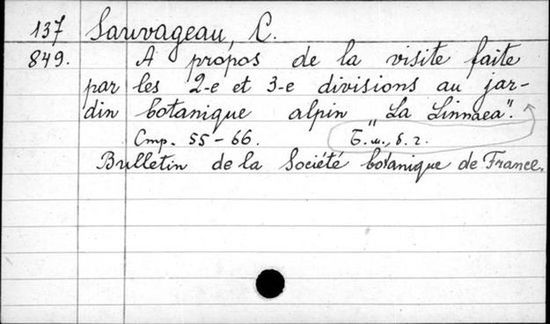 137 Sauvageau, C.
849. A propos de la visite faite
par les 2-e et 3-e divisions au jar-
din botanique alpin „La Linnaea".
Стр. 55-66. Б. м., б. г.
Bulletin de la Société botanique de France.